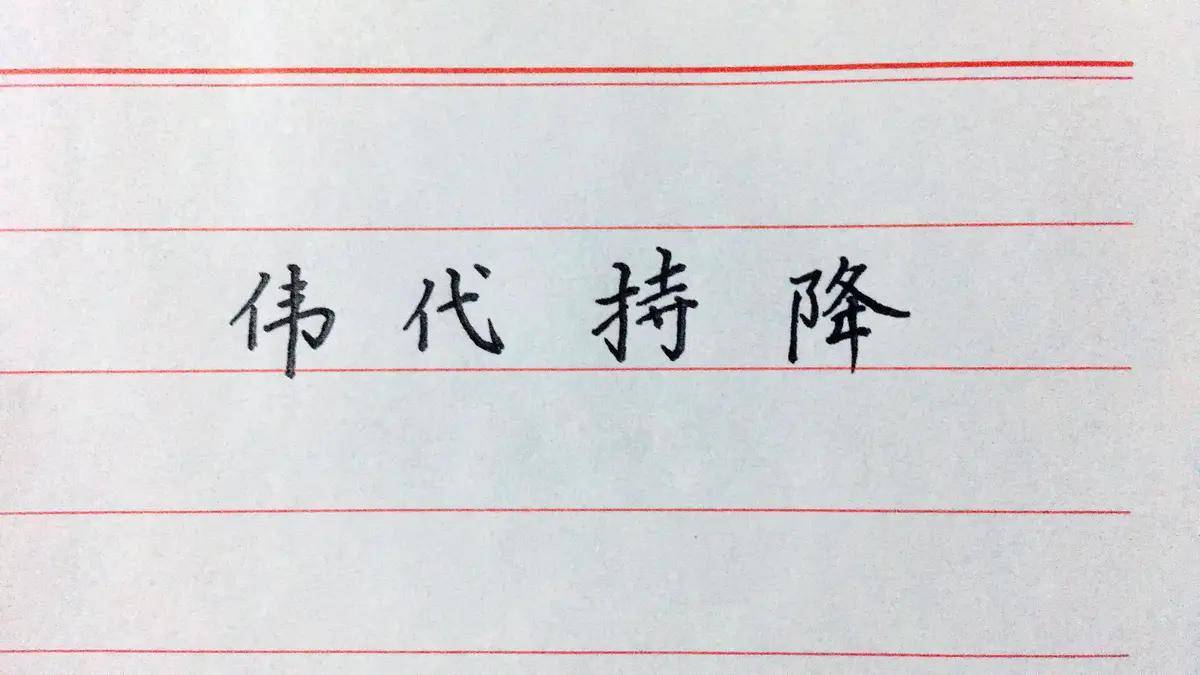 伟 代 持 降